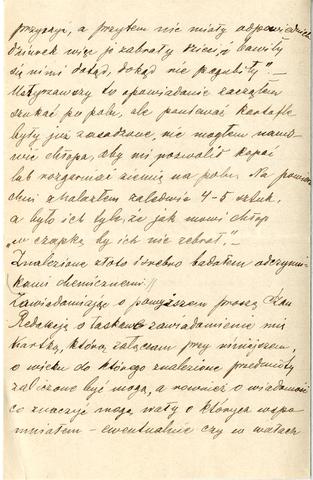 przyczyn, a przytem nie miały odpowiednich
dziurek więc je zabrały dzieci i bawiły
się niemi dotąd, dokąd nie pogubiły".—
Usłyszawszy to opowiadanie zacząłem
szukać po polu, ale ponieważ kartofle
były już zasadzone, nie mogłem namó-
wić chłopa, aby mi pozwolił kopać
lub rozgarniać ziemię na polu. Na powierz
chni znalazłem zaledwie 4-5 sztuk,
a było ich tyle, że jak mówi chłop
„w czapkę by ich nie zebrał".—
Znalezione złoto i srebro badałem odczynni-
kami chemicznemi.
Zawiadamiając o powyższem proszę Szan
Redakcję o łaskawe zawiadomienie mię
kartką, którą załączam przy niniejszem
o wieku do którego znalezione przedmioty
zaliczone być mogą, a również o wiadomość
co znaczyć mogą wały o których wspo
mniałem - ewentualnie czy w wałach